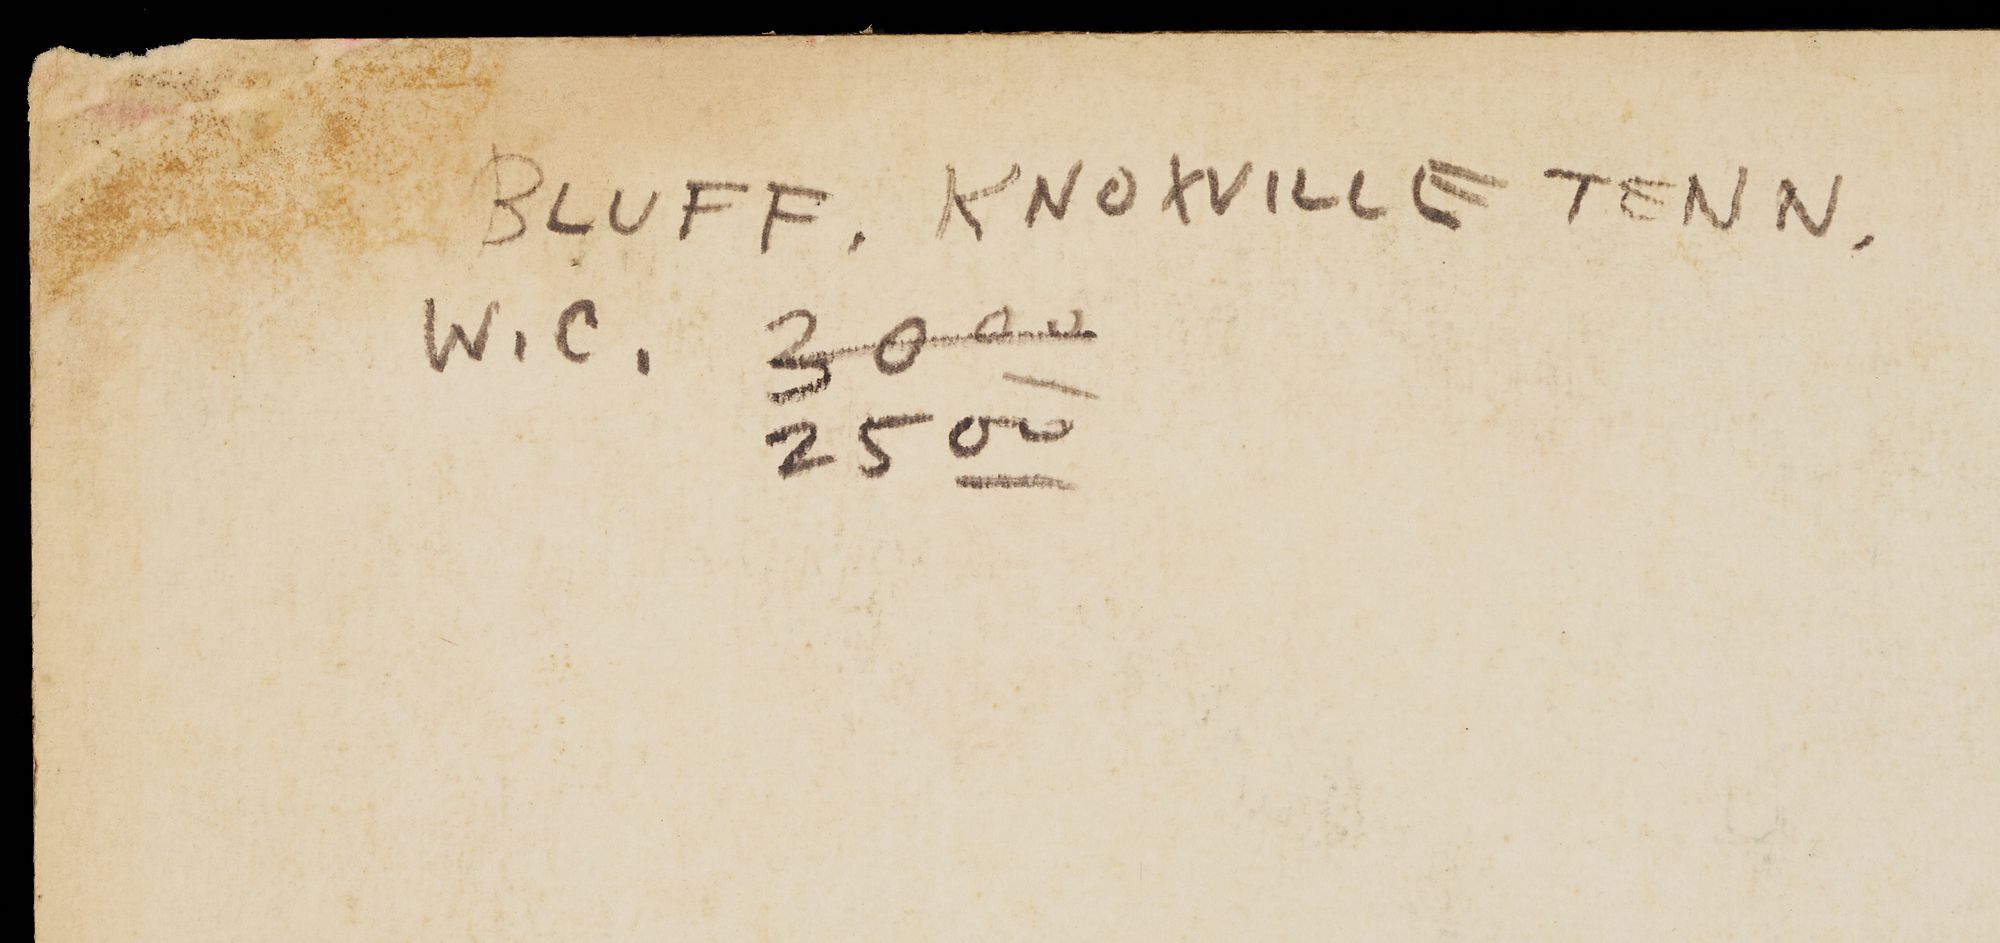 BLUFF. KNOXVILLE TENN.
W.C. 3000
2500